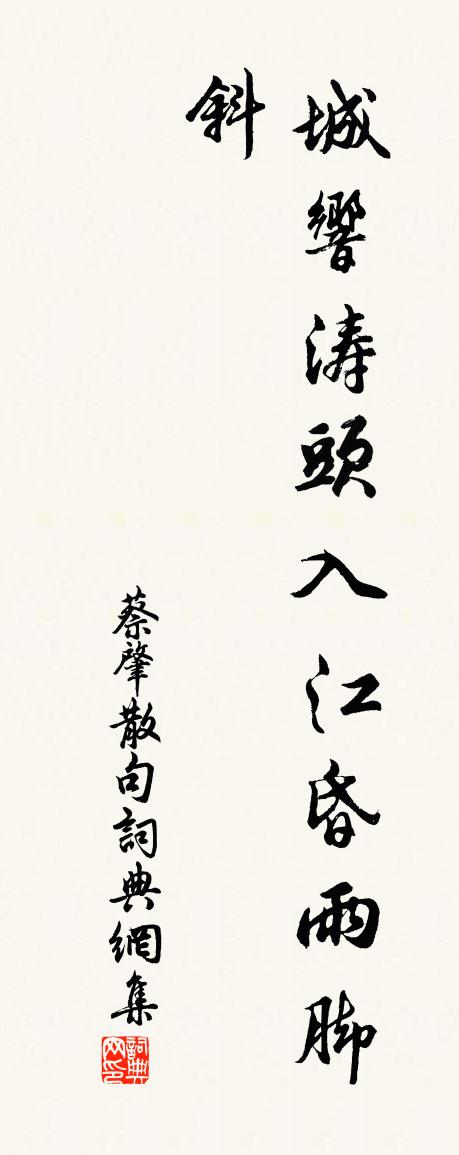 城響濤頭入江昏雨脚
斜
蔡肇散句詞典網集
詞典
网印